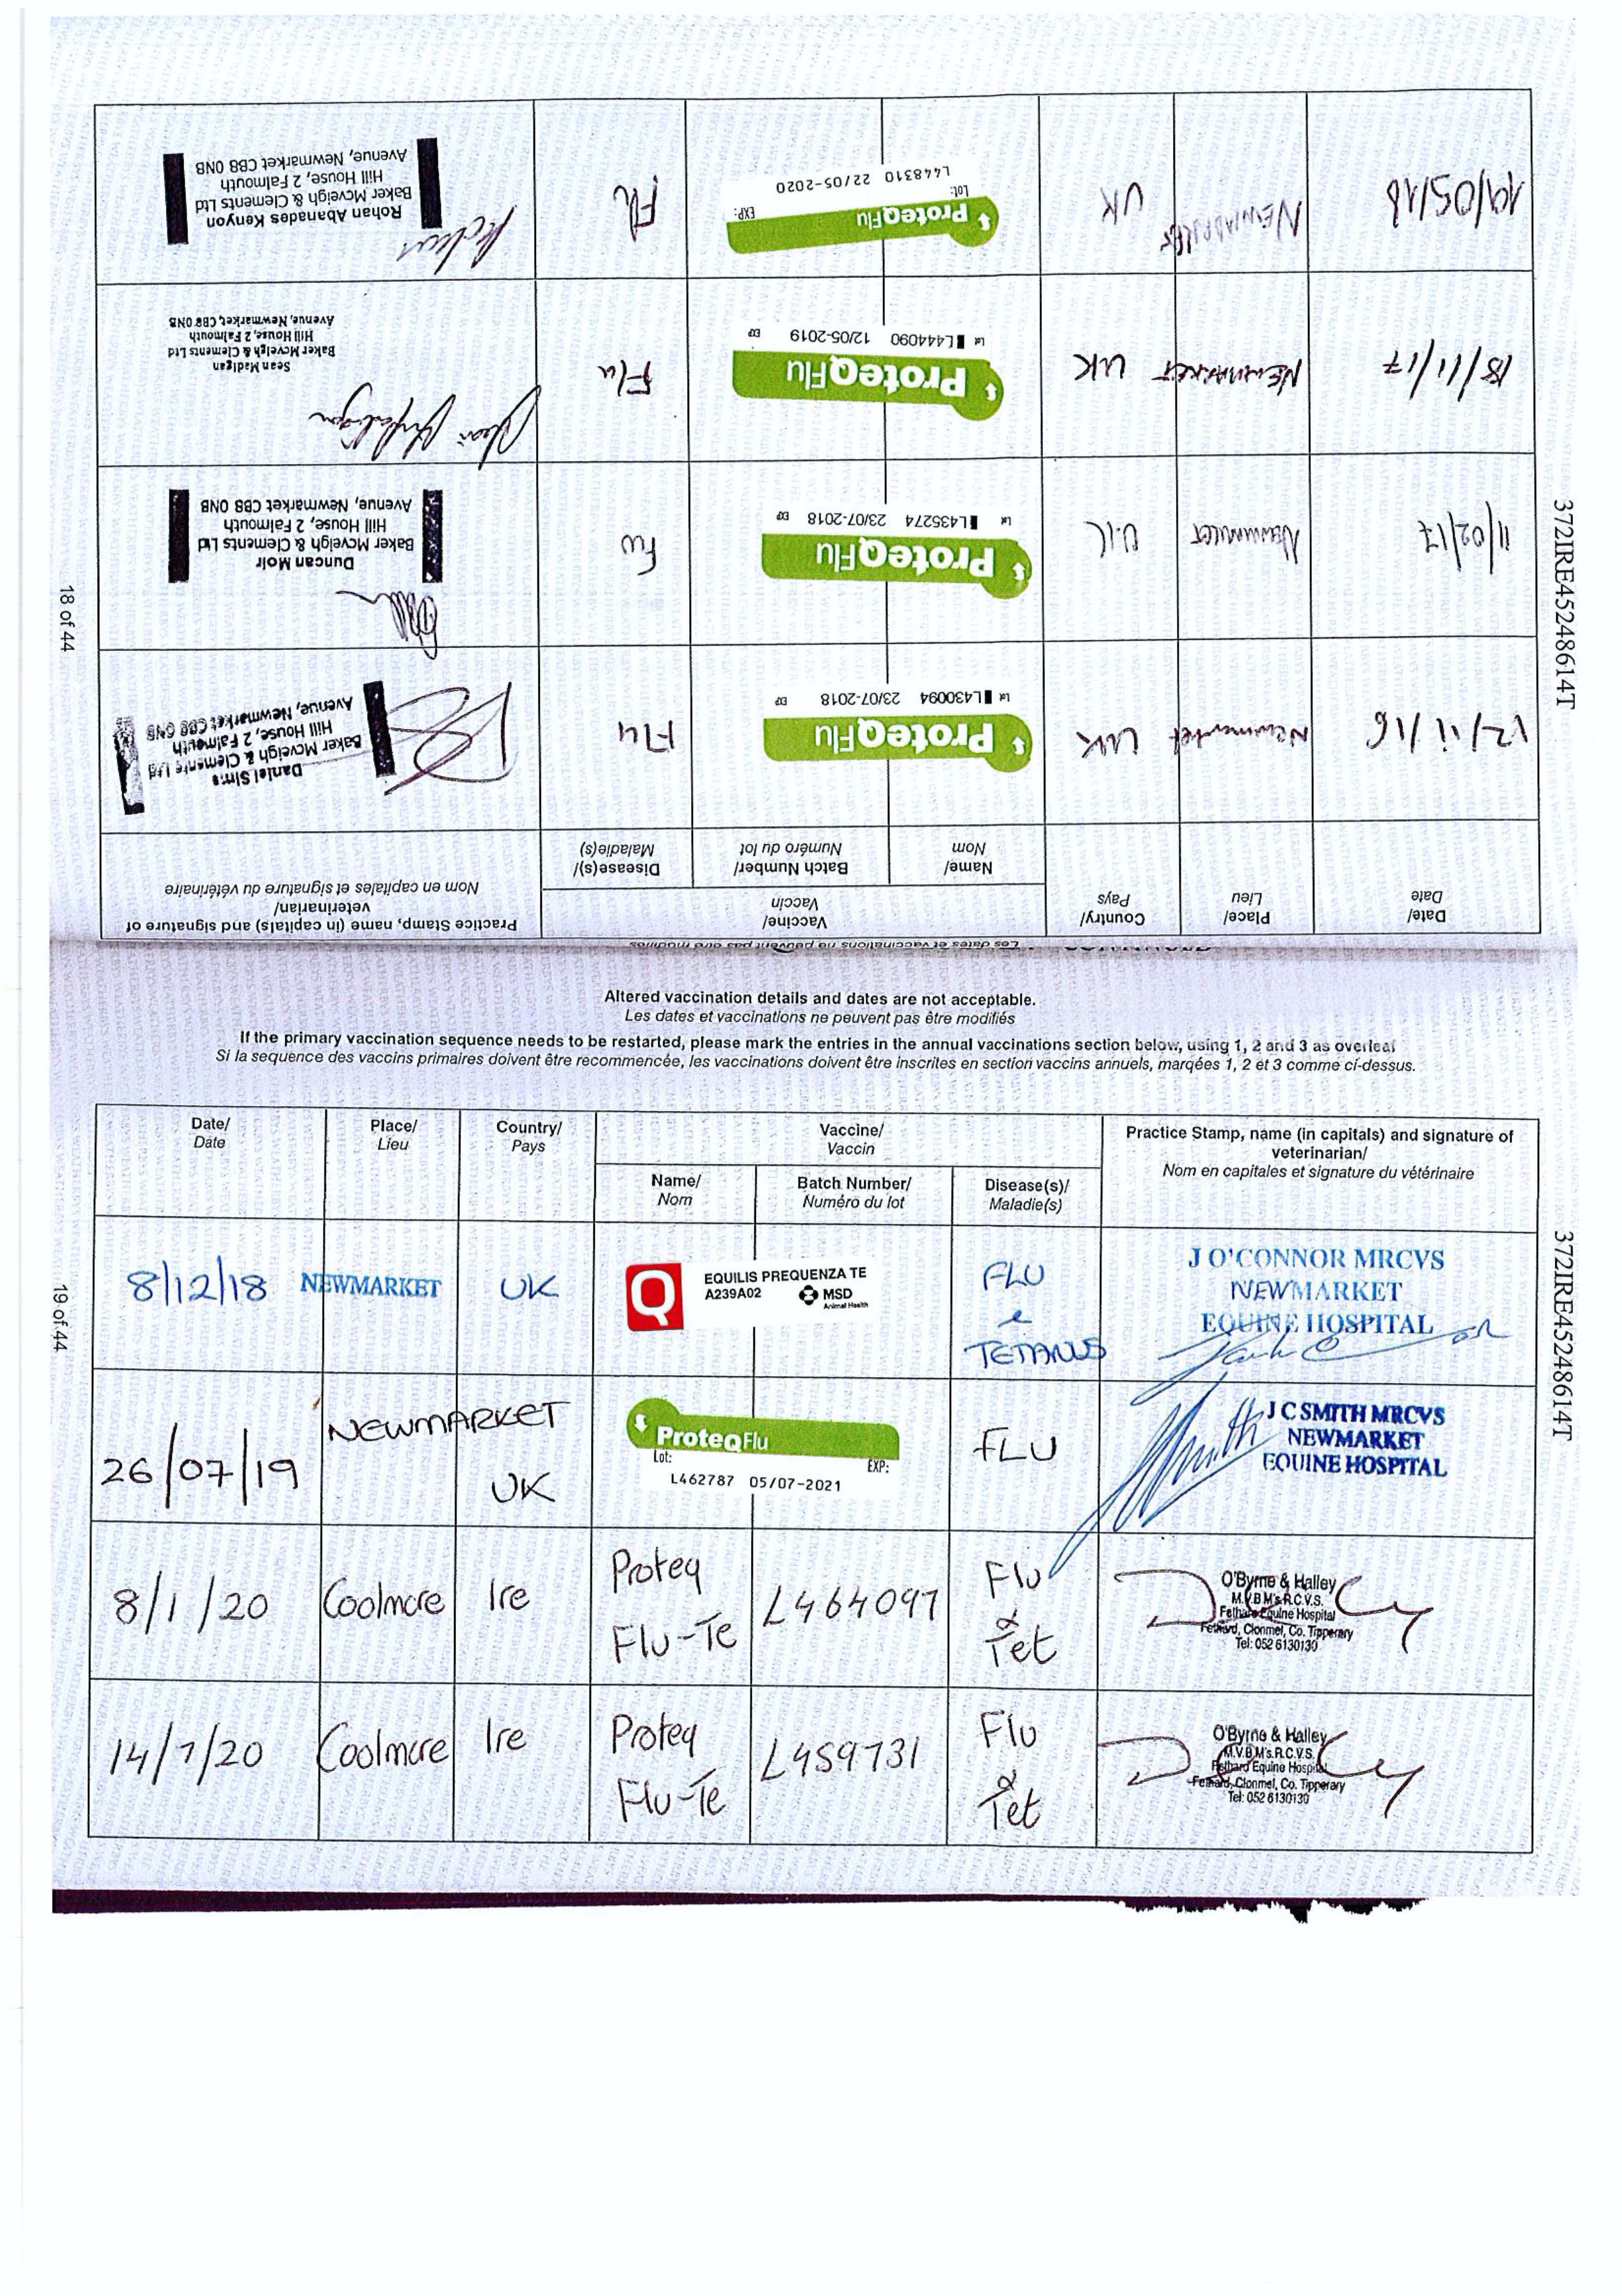 Les dates et vaccinations ne peuvent pas être modifiés
Date/
Date
Place/
Lieu
Country/
Pays
Vaccine/
Vaccin
Name/
Nom
Batch Number/
Numéro du lot
Disease(s)/
Maladie(s)
Practice Stamp, name (in capitals) and signature of
veterinarian/
Nom en capitales et signature du vétérinaire
12/11/16
Newmarket
UK
ProteqFlu
Lot L430094 23/07-2018 EXP
Flu
Daniel Sims
Baker Mcveigh & Clements Ltd
Hill House, 2 Falmouth
Avenue, Newmarket CB8 0NB
11/02/17
Newmarket
U.K
ProteqFlu
Lot L435274 23/07-2018 EXP
Flu
Duncan Moir
Baker Mcveigh & Clements Ltd
Hill House, 2 Falmouth
Avenue, Newmarket CB8 0NB
18/11/17
Newmarket
UK
ProteqFlu
Lot L444090 12/05-2019 EXP
Flu
Sean Madigan
Baker Mcveigh & Clements Ltd
Hill House, 2 Falmouth
Avenue, Newmarket, CB8 0NB
19/05/18
NEWMARKET
UK
ProteqFlu
Lot: EXP:
L448310 22/05-2020
Flu
Rohan Abanades Kenyon
Baker Mcveigh & Clements Ltd
Hill House, 2 Falmouth
Avenue, Newmarket CB8 0NB
18 of 44
372IRE45248614T
Altered vaccination details and dates are not acceptable.
Les dates et vaccinations ne peuvent pas être modifiés
If the primary vaccination sequence needs to be restarted, please mark the entries in the annual vaccinations section below, using 1, 2 and 3 as overleaf
Si la sequence des vaccins primaires doivent être recommencée, les vaccinations doivent être inscrites en section vaccins annuels, marqées 1, 2 et 3 comme cí-dessus.
Date/
Date
Place/
Lieu
Country/
Pays
Vaccine/
Vaccin
Name/
Nom
Batch Number/
Numéro du lot
Disease(s)/
Maladie(s)
Practice Stamp, name (in capitals) and signature of
veterinarian/
Nom en capitales et signature du vétérinaire
8/12/18
NEWMARKET
UK
Q
EQUILIS PREQUENZA TE
A239A02
MSD
Animal Health
FLU
e
TETANUS
J O'CONNOR MRCVS
NEWMARKET
EQUINE HOSPITAL
26/07/19
NEWMARKET
UK
ProteqFlu
Lot: EXP:
L462787 05/07-2021
FLU
J C SMITH MRCVS
NEWMARKET
EQUINE HOSPITAL
8/1/20
Coolmore
Ire
Proteq
Flu-Te
L464097
Flu
&
Tet
O'Byrne & Halley
M.V.B M's.R.C.V.S.
Fethard Equine Hospital
Fethard, Clonmel, Co. Tipperary
Tel: 052 6130130
14/7/20
Coolmore
Ire
Proteq
Flu-Te
L459731
Flu
&
Tet
O'Byrne & Halley
M.V.B M's.R.C.V.S.
Fethard Equine Hospital
Fethard, Clonmel, Co. Tipperary
Tel: 052 6130130
19 of 44
372IRE45248614T